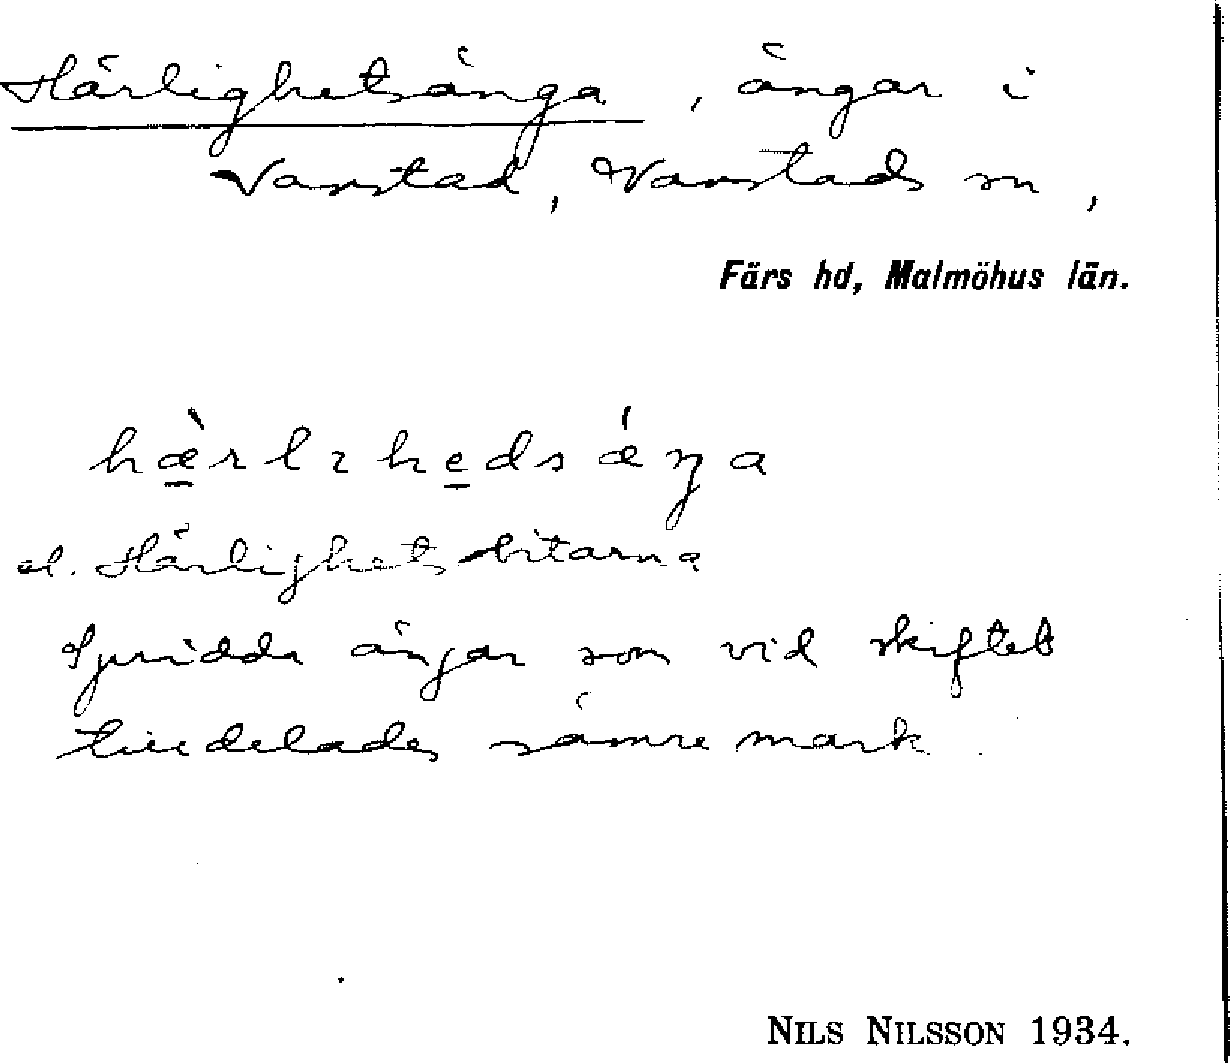 Härlighetsänga, ängar i
Vanstad, Vanstads sn,
Färs hd, Malmöhus län.
hæ̱̀rlıhe̱dsǽŋa
el. Härlighetsbitarna
Spridda ängar som vid skiftet
tilldelades sämre mark.
NILS NILSSON 1934.